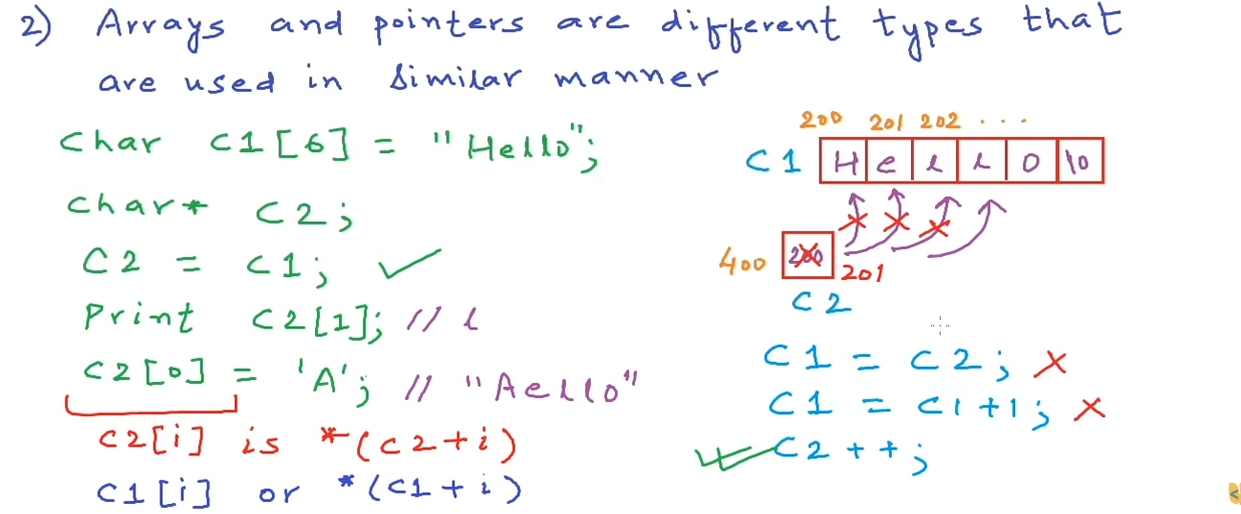 2) Arrays and pointers are different types that
are used in similar manner
Char C1[6] = "Hello";
char* C2;
C2 = C1; ✓
Print C2[1]; // l
C2[0] = 'A'; // "Aello"
C2[i] is *(C2+i)
C1[i] or *(C1+i)
200 201 202 ...
C1 H e l l o \0
400 200 201
C2
C1 = C2; X
C1 = C1+1; X
✓ C2++;